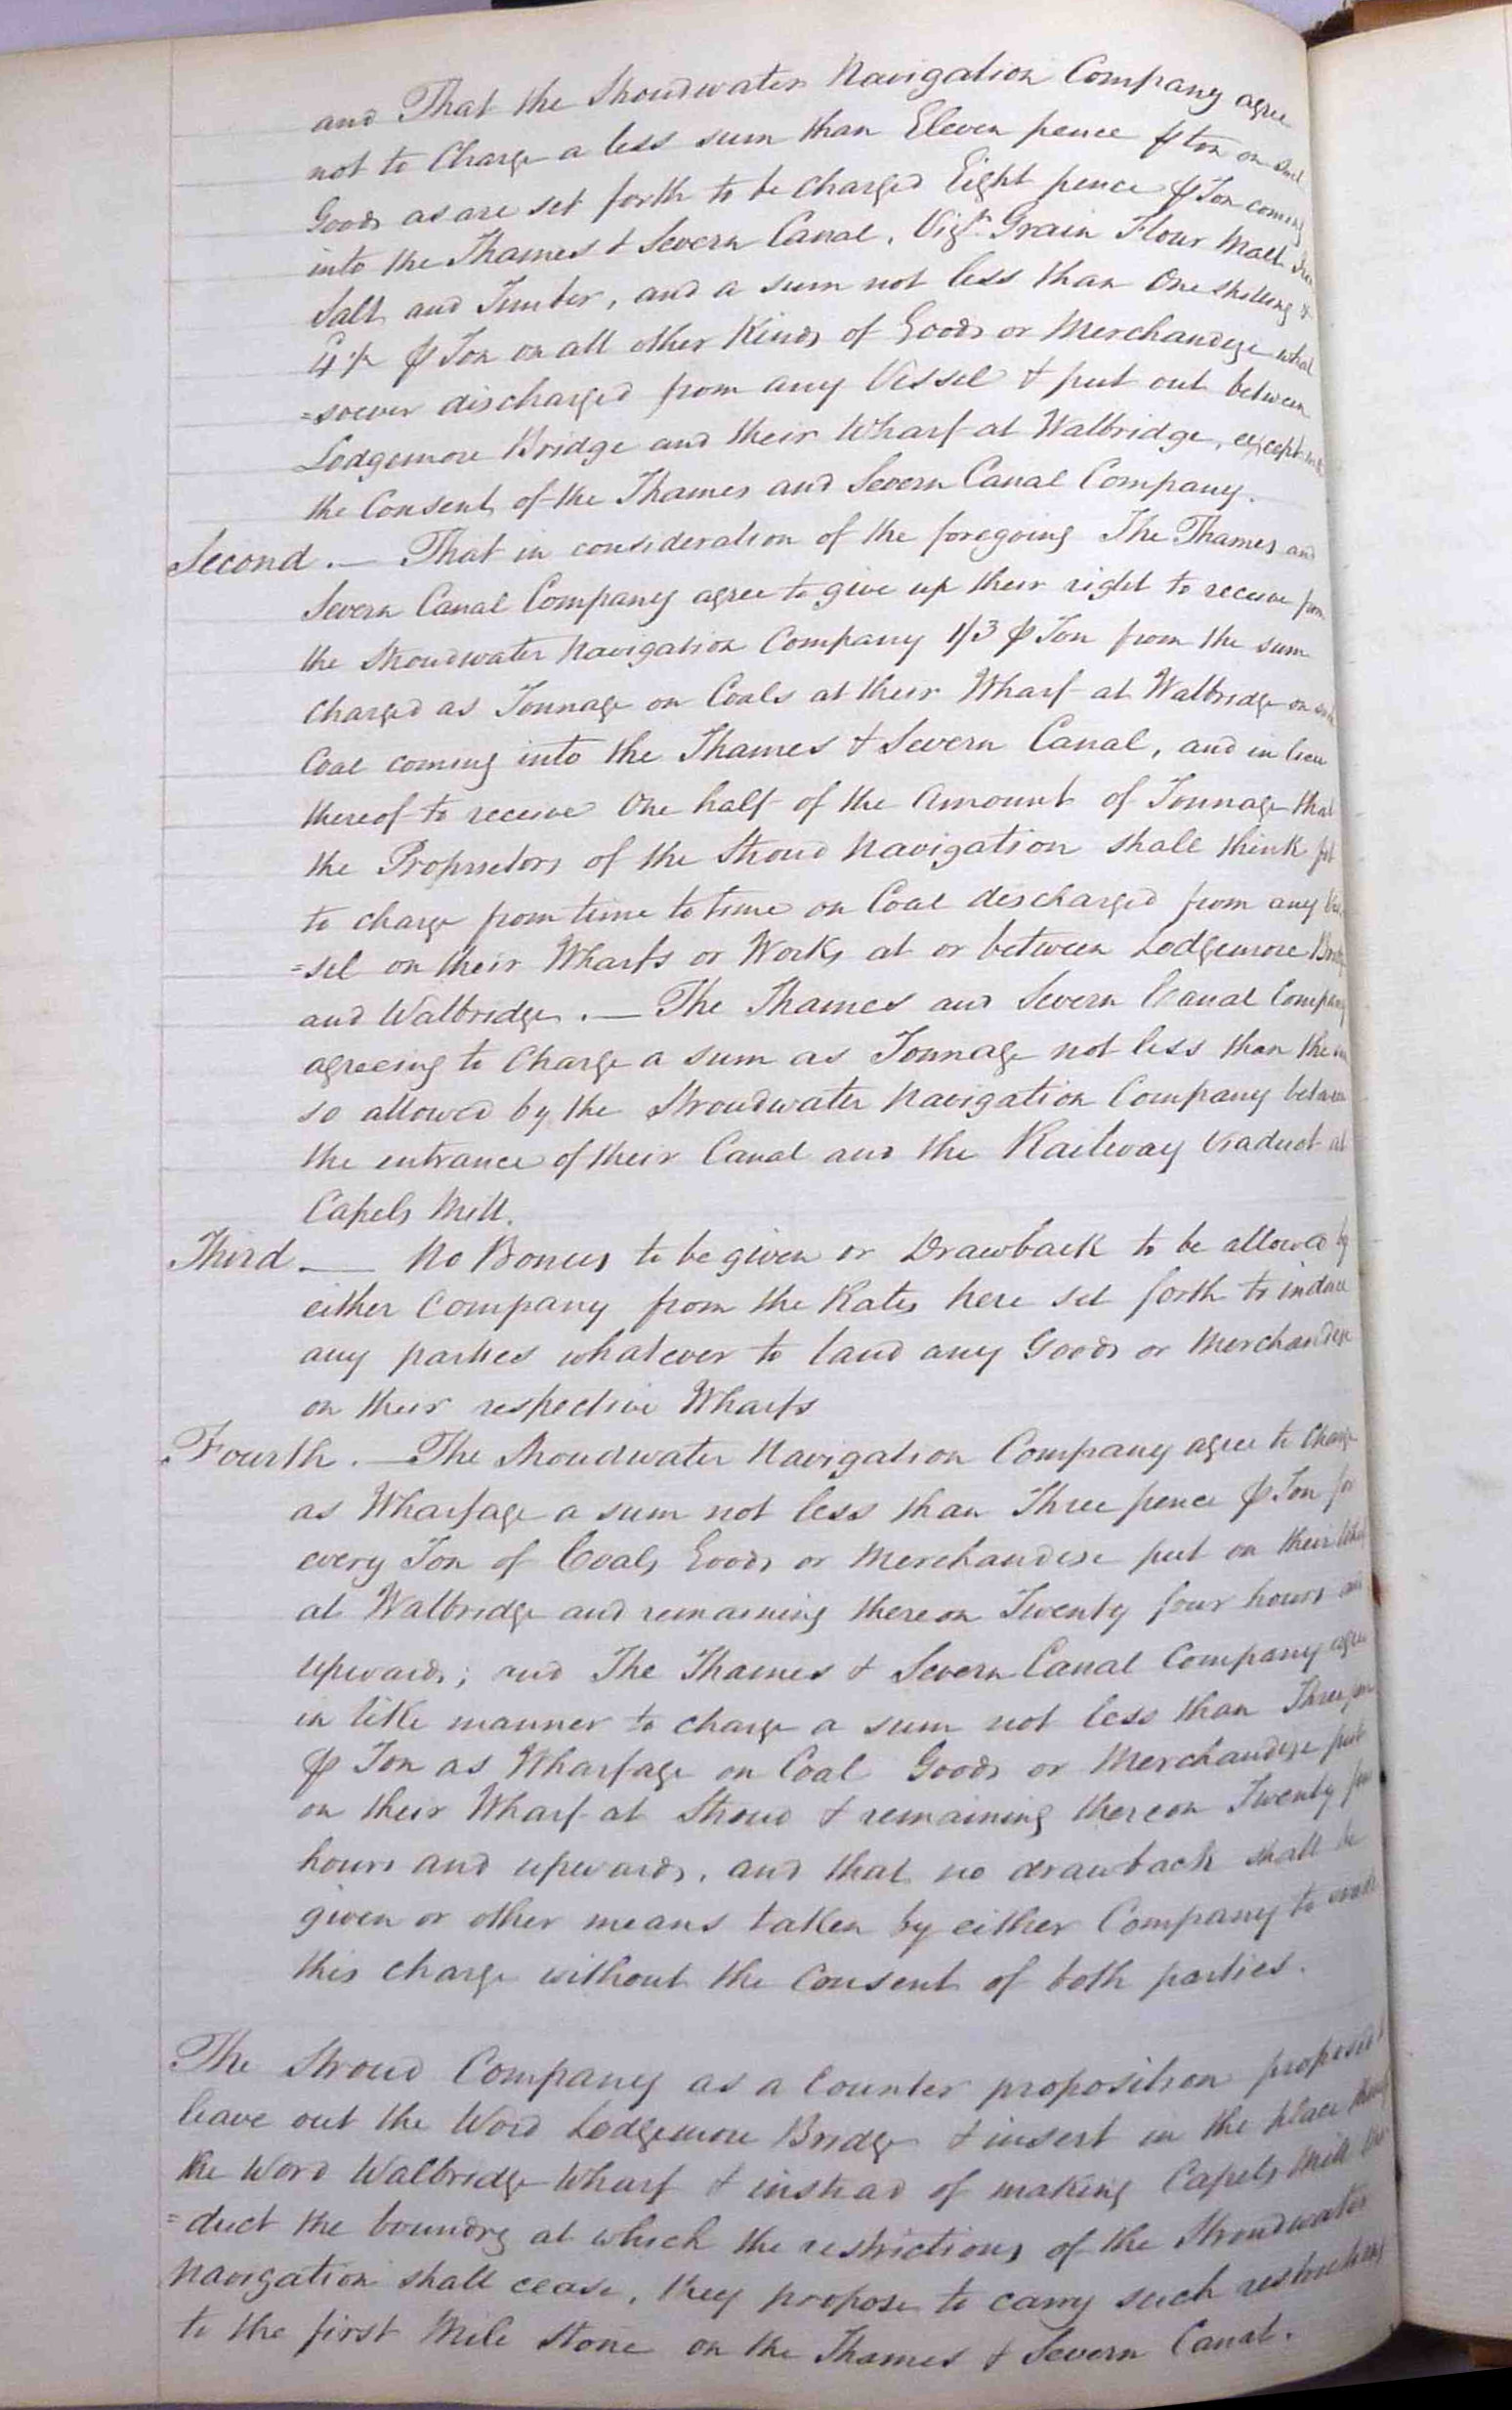 and That the Stroudwater Navigation Company agree
not to Charge a less sum than Eleven pence ⅌ ton on such
Goods as are set forth to be charged Eight pence ⅌ Ton coming
into the Thames & Severn Canal, Vizt. Grain Flour Malt
Salt and Timber, and a sum not less than One shilling &
⅌ Ton on all other Kinds of Goods or Merchandize what
=soever discharged from any Vessel & put out between
Lodgemore Bridge and their Wharf at Walbridge, except
the Consent of the Thames and Severn Canal Company.
Second. — That in consideration of the foregoing The Thames and
Severn Canal Company agree to give up their right to receive from
the Stroudwater Navigation Company 1/3 ⅌ Ton from the sum
charged as Tonnage on Coals at their Wharf at Walbridge on
Coal coming into the Thames & Severn Canal, and in lieu
thereof to receive One half of the Amount of Tonnage that
the Proprietors of the Stroud Navigation shall think fit
to charge from time to time on Coal discharged from any Ves
=sel on their Wharfs or Works at or between Lodgemore Bridge
and Walbridge. — The Thames and Severn Canal Company
agreeing to Charge a sum as Tonnage not less than the
so allowed by the Stroudwater Navigation Company between
the entrance of their Canal and the Railway Viaduct at
Capels Mill.
Third — No Bonus to be given or Drawback to be allowed by
either Company from the Rates here set forth to induce
any parties whatever to land any Goods or Merchandize
on their respective Wharfs
Fourth. — The Stroudwater Navigation Company agree to Charge
as Wharfage a sum not less than Three pence ⅌ Ton for
every Ton of Coals, Goods or Merchandise put on their Wharf
at Walbridge and remaining thereon Twenty four hours and
upwards; and The Thames & Severn Canal Company agree
in like manner to charge a sum not less than Three pence
⅌ Ton as Wharfage on Coal Goods or Merchandize put
on their Wharf at Stroud & remaining thereon Twenty four
hours and upwards, and that no drawback shall be
given or other means taken by either Company to evade
this charge without the Consent of both parties.
The Stroud Company as a Counter proposition proposed to
leave out the Word Lodgemore Bridge & insert in the place thereof
the Word Walbridge Wharf & instead of making Capels Mill Via
=duct the boundry at which the restrictions of the Stroudwater
Navigation shall cease, they propose to carry such restrictions
to the first Mile Stone on the Thames & Severn Canal.